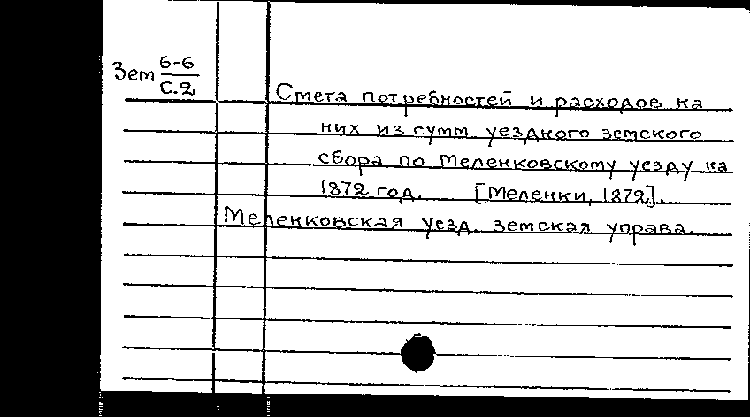 Зем 6-6
С.2
Смета потребностей и расходов на
них из сумм уездного земского
сбора по Меленковскому уезду на
1872 год. [Меленки, 1872].
Меленковская уезд. земская управа.